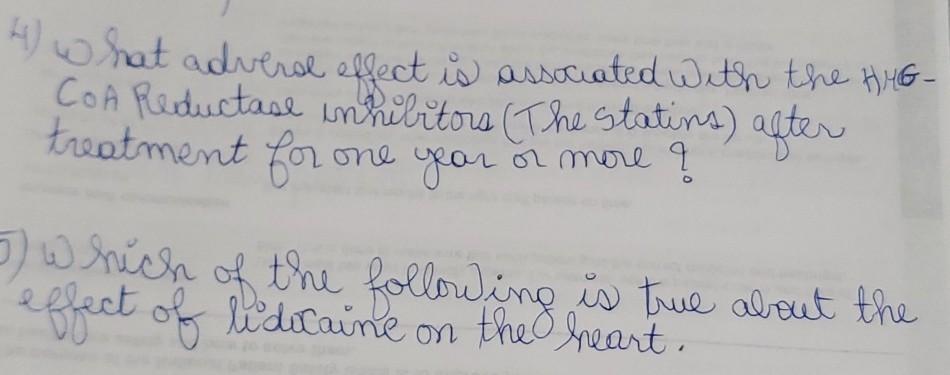 4) What adverse effect is associated with the HMG-
CoA Reductase inhibitors (The statins) after
treatment for one year or more ?
5) Which of the following is true about the
effect of lidocaine on the heart.